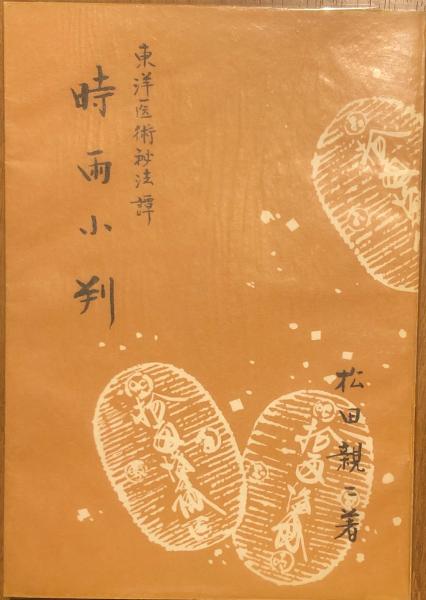 東洋医術秘法譚
時雨小判
松田親二著